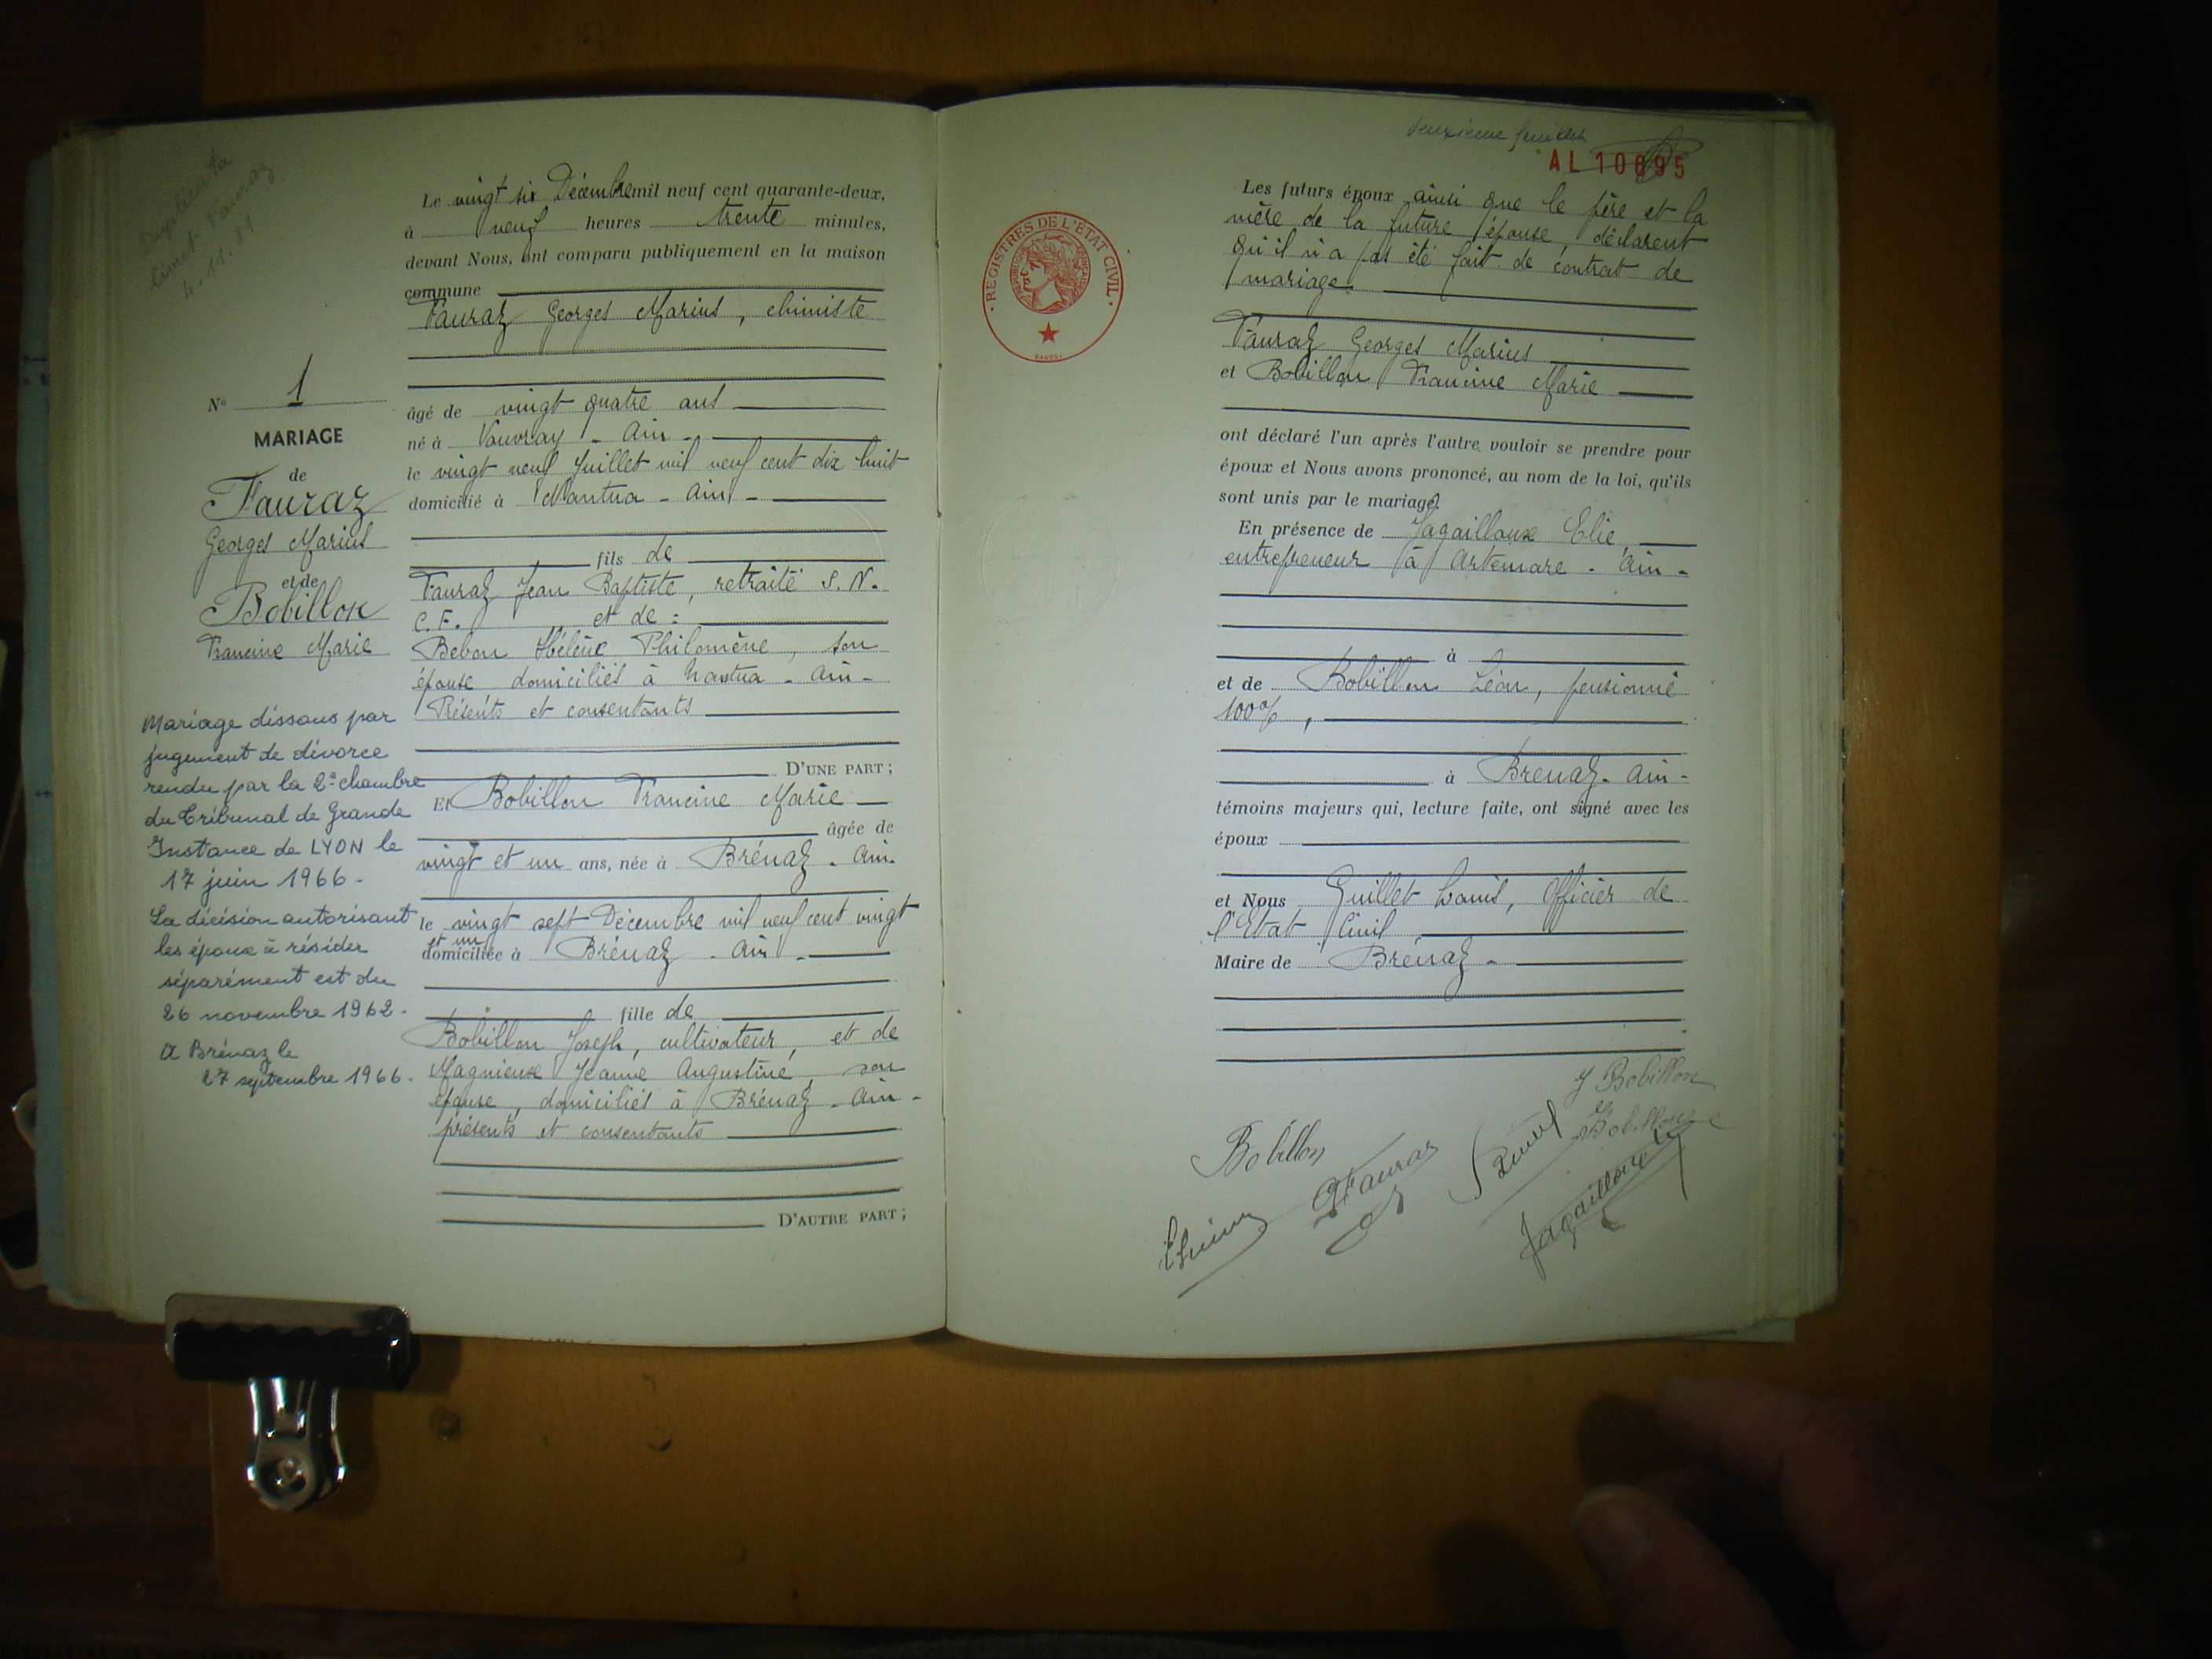 Duplicata
livret Fauraz
4.11.81
N° 1
MARIAGE
de
Fauraz
Georges Marius
et de
Bobillon
Francine Marie
Mariage dissous par
jugement de divorce
rendu par la 2e chambre
du Tribunal de Grande
Instance de LYON le
17 juin 1966.
La décision autorisant
les époux à résider
séparément est du
26 novembre 1962.
A Brénaz le
27 septembre 1966.
Le vingt six Décembre mil neuf cent quarante-deux,
à neuf heures trente minutes,
devant Nous, ont comparu publiquement en la maison
commune
Fauraz Georges Marius, chimiste
âgé de vingt quatre ans
né à Vouvray - Ain -
le vingt neuf Juillet mil neuf cent dix huit
domicilié à Nantua - Ain -
fils de
Fauraz Jean Baptiste, retraité S.N.
C.F. et de :
Bebon Hélène Philomène, son
épouse domiciliés à Nantua - Ain -
Présents et consentants
D'UNE PART ;
ET Bobillon Francine Marie
âgée de
vingt et un ans, née à Brénaz - Ain.
le vingt sept Décembre mil neuf cent vingt
et un
domiciliée à Brénaz - Ain -
fille de
Bobillon Joseph, cultivateur, et de
Magnieux Jeanne Augustine, son
épouse, domiciliés à Brénaz - Ain -
présents et consentants
D'AUTRE PART ;
deuxième feuillet
AL 10695
REGISTRES DE L'ETAT CIVIL
Les futurs époux ainsi que le père et la
mère de la future épouse, déclarent
qu'il n'a pas été fait de contrat de
mariage.
Fauraz Georges Marius
et Bobillon Francine Marie
ont déclaré l'un après l'autre vouloir se prendre pour
époux et Nous avons prononcé, au nom de la loi, qu'ils
sont unis par le mariage.
En présence de Jagailloux Elie,
entrepreneur à Artemare - Ain -
à
et de Bobillon Léon, pensionné
100%,
à Brenaz - Ain -
témoins majeurs qui, lecture faite, ont signé avec les
époux
et Nous Guillet Louis, Officier de
l'Etat Civil
Maire de Brénaz -
J Bobillon
Bobillon
Bobillon
Fauraz
Jagailloux